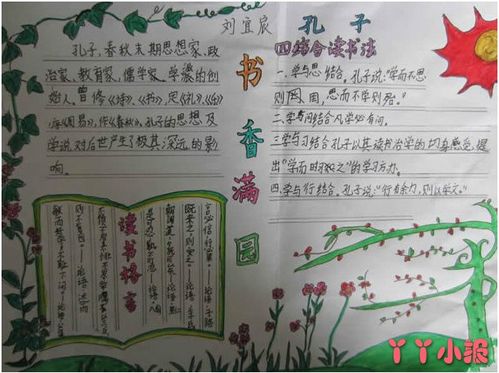 刘宜宸
孔子
书香满园
孔子,春秋末期思想家、政
治家、教育家,儒学家、学派的创
始人,曾修《诗》、《书》,定《礼》、《
《周易》,作《春秋》。孔子的思想及
学说对后世产生了极其深远的影
响。
四结合读书法
一.学与思结合。孔子说:"学而不思
则罔,思而不学则殆。"
二.学与问结合凡学必有问。
三学与习结合孔子以其读书治学的切身感受,提
出"学而时习之"的学习方力。
四.学与行结合。孔子说:"行有余力,则以学文。"
读书格言
言必信行必果。
既来之则安之。
朝闻道,夕死可矣。
敏而好学,不耻下问。
丫丫小报